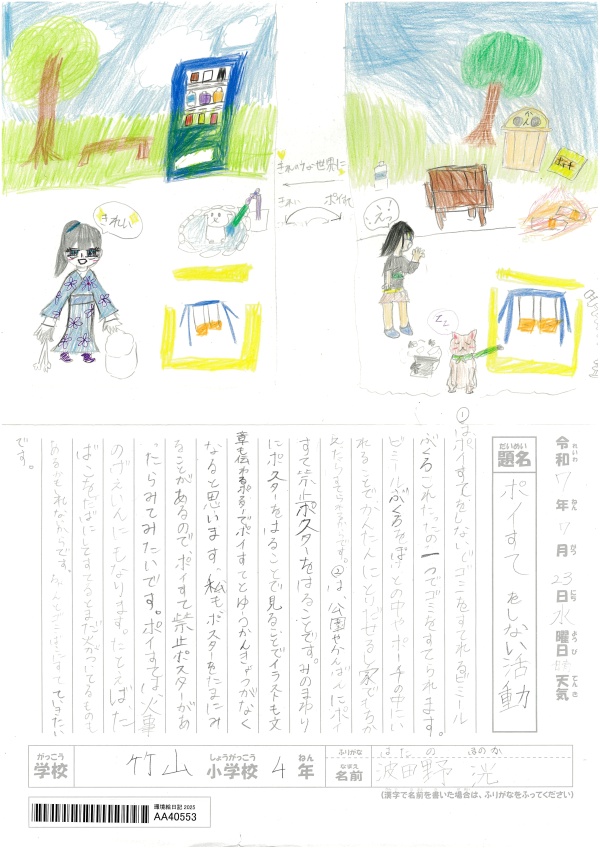 きれいな世界に
きれい
ポイ捨て
きれい
えっ
カン
ポーチ
令和7年7月23日水曜日 天気
れいわ ねん がつ にち ようび てんき
だいめい
題名
ポイすてをしない活動
①はポイすてをしないでゴミをすてれるビニール
ぶくろこれたったの一つでゴミをすてられます。
ビニールぶくろをぽけっとの中やポーチの中にい
れることでかんたんにとりだせるし家でもちか
すて禁止ポスターをはることですみのまわり
にポスターをはることで見ることでイラストも文
章も伝わるポスターでポイすてとゆうかんきょうがなく
なると思います。私もポスターをたまにみ
ることがあるので、ポイすて禁止ポスターがあ
ったらみてみたいです。ポイすては火事
のげんいんにもなります。たとえば、た
ばこをたばにしてすてるとまだ火がついてるものも
あるかもしれないからです。
です。
がっこう
学校
竹山
しょうがっこう
小学校
4
ねん
年
ふりがな
はたの ほのか
なまえ
名前
波田野 洸
(漢字で名前を書いた場合は、ふりがなをふってください)
環境絵日記 2025
AA40553